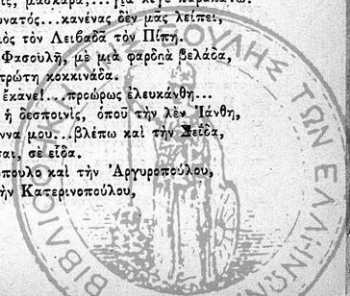 μασκαρᾶ,... γιὰ λίγο παρακάτω.
υνατός... κανένας δὲν μᾶς λείπει,
ιὸς τὸν Λειβαδᾶ τὸν Πίπη.
Φασουλῆ, μὲ μιὰ φαρδηὰ βελάδα,
πρώτη κοκκινάδα.
ἔκανε!... προώρως ἐλευκάνθη...
ἡ δεσποινίς, ὁποῦ τὴν λὲν Ἰάνθη,
ννα μου... βλέπω καὶ τὴν Σεΐδα,
σαι, σὲ εἶδα.
όπουλο καὶ τὴν Ἀργυροπούλου,
ὴν Κατερινοπούλου,
ΒΙΒΛΙΟΘΗΚΗ ΤΗΣ ΒΟΥΛΗΣ ΤΩΝ ΕΛΛΗΝΩΝ